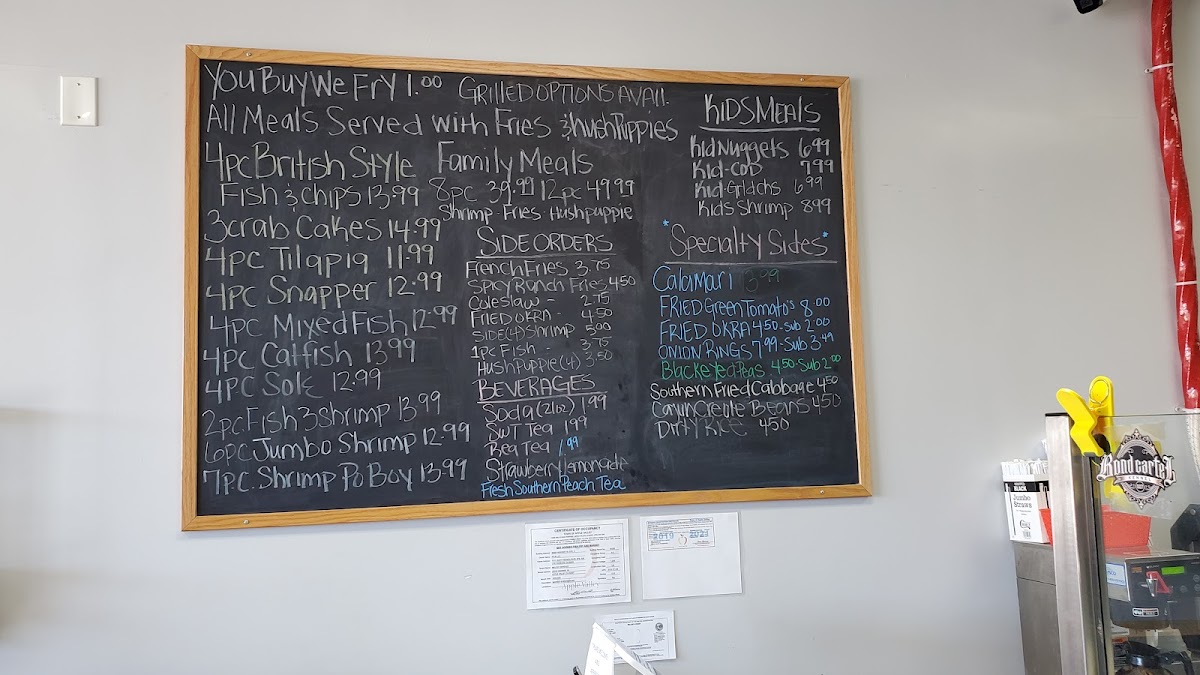 You Buy We Fry 1.00
GRILLED OPTIONS AVAIL.
All Meals Served with Fries & Hush Puppies
4pc British Style
Fish & Chips 13.99
3 crab Cakes 14.99
4pc Tilapia 11.99
4pc Snapper 12.99
4pc Mixed Fish 12.99
4pc Catfish 13.99
4pc Sole 12.99
2pc Fish 3 Shrimp 13.99
6pc Jumbo Shrimp 12.99
7pc. Shrimp Po Boy 13.99
Family Meals
8pc 39.99 12pc 49.99
Shrimp - Fries Hushpuppie
SIDE ORDERS
French Fries 3.75
Spicy Ranch Fries 4.50
Coleslaw - 2.75
FRIED OKRA - 4.50
SIDE (4) Shrimp 5.00
1pc Fish - 3.75
Hush Puppie (4) 3.50
BEVERAGES
Soda (21oz) 1.99
SWT Tea 1.99
Reg Tea 1.99
Strawberry Lemonade
Fresh Southern Peach Tea
KIDS MEALS
Kid Nuggets 6.99
Kid-COD 7.99
Kid-Grldchs 6.99
Kids Shrimp 8.99
*Specialty Sides*
Calamari 13.99
FRIED Green Tomato's 8.00
FRIED OKRA 4.50-Sub 2.00
ONION RINGS 7.99-Sub 3.49
Blackeyed Peas 4.50-Sub 2.00
Southern Fried Cabbage 4.50
Cajun Creole Beans 4.50
Dirty Rice 4.50
CERTIFICATE OF OCCUPANCY
Apple Valley
2019 2021
BLACK
Jumbo
Straws
Bond Cartel